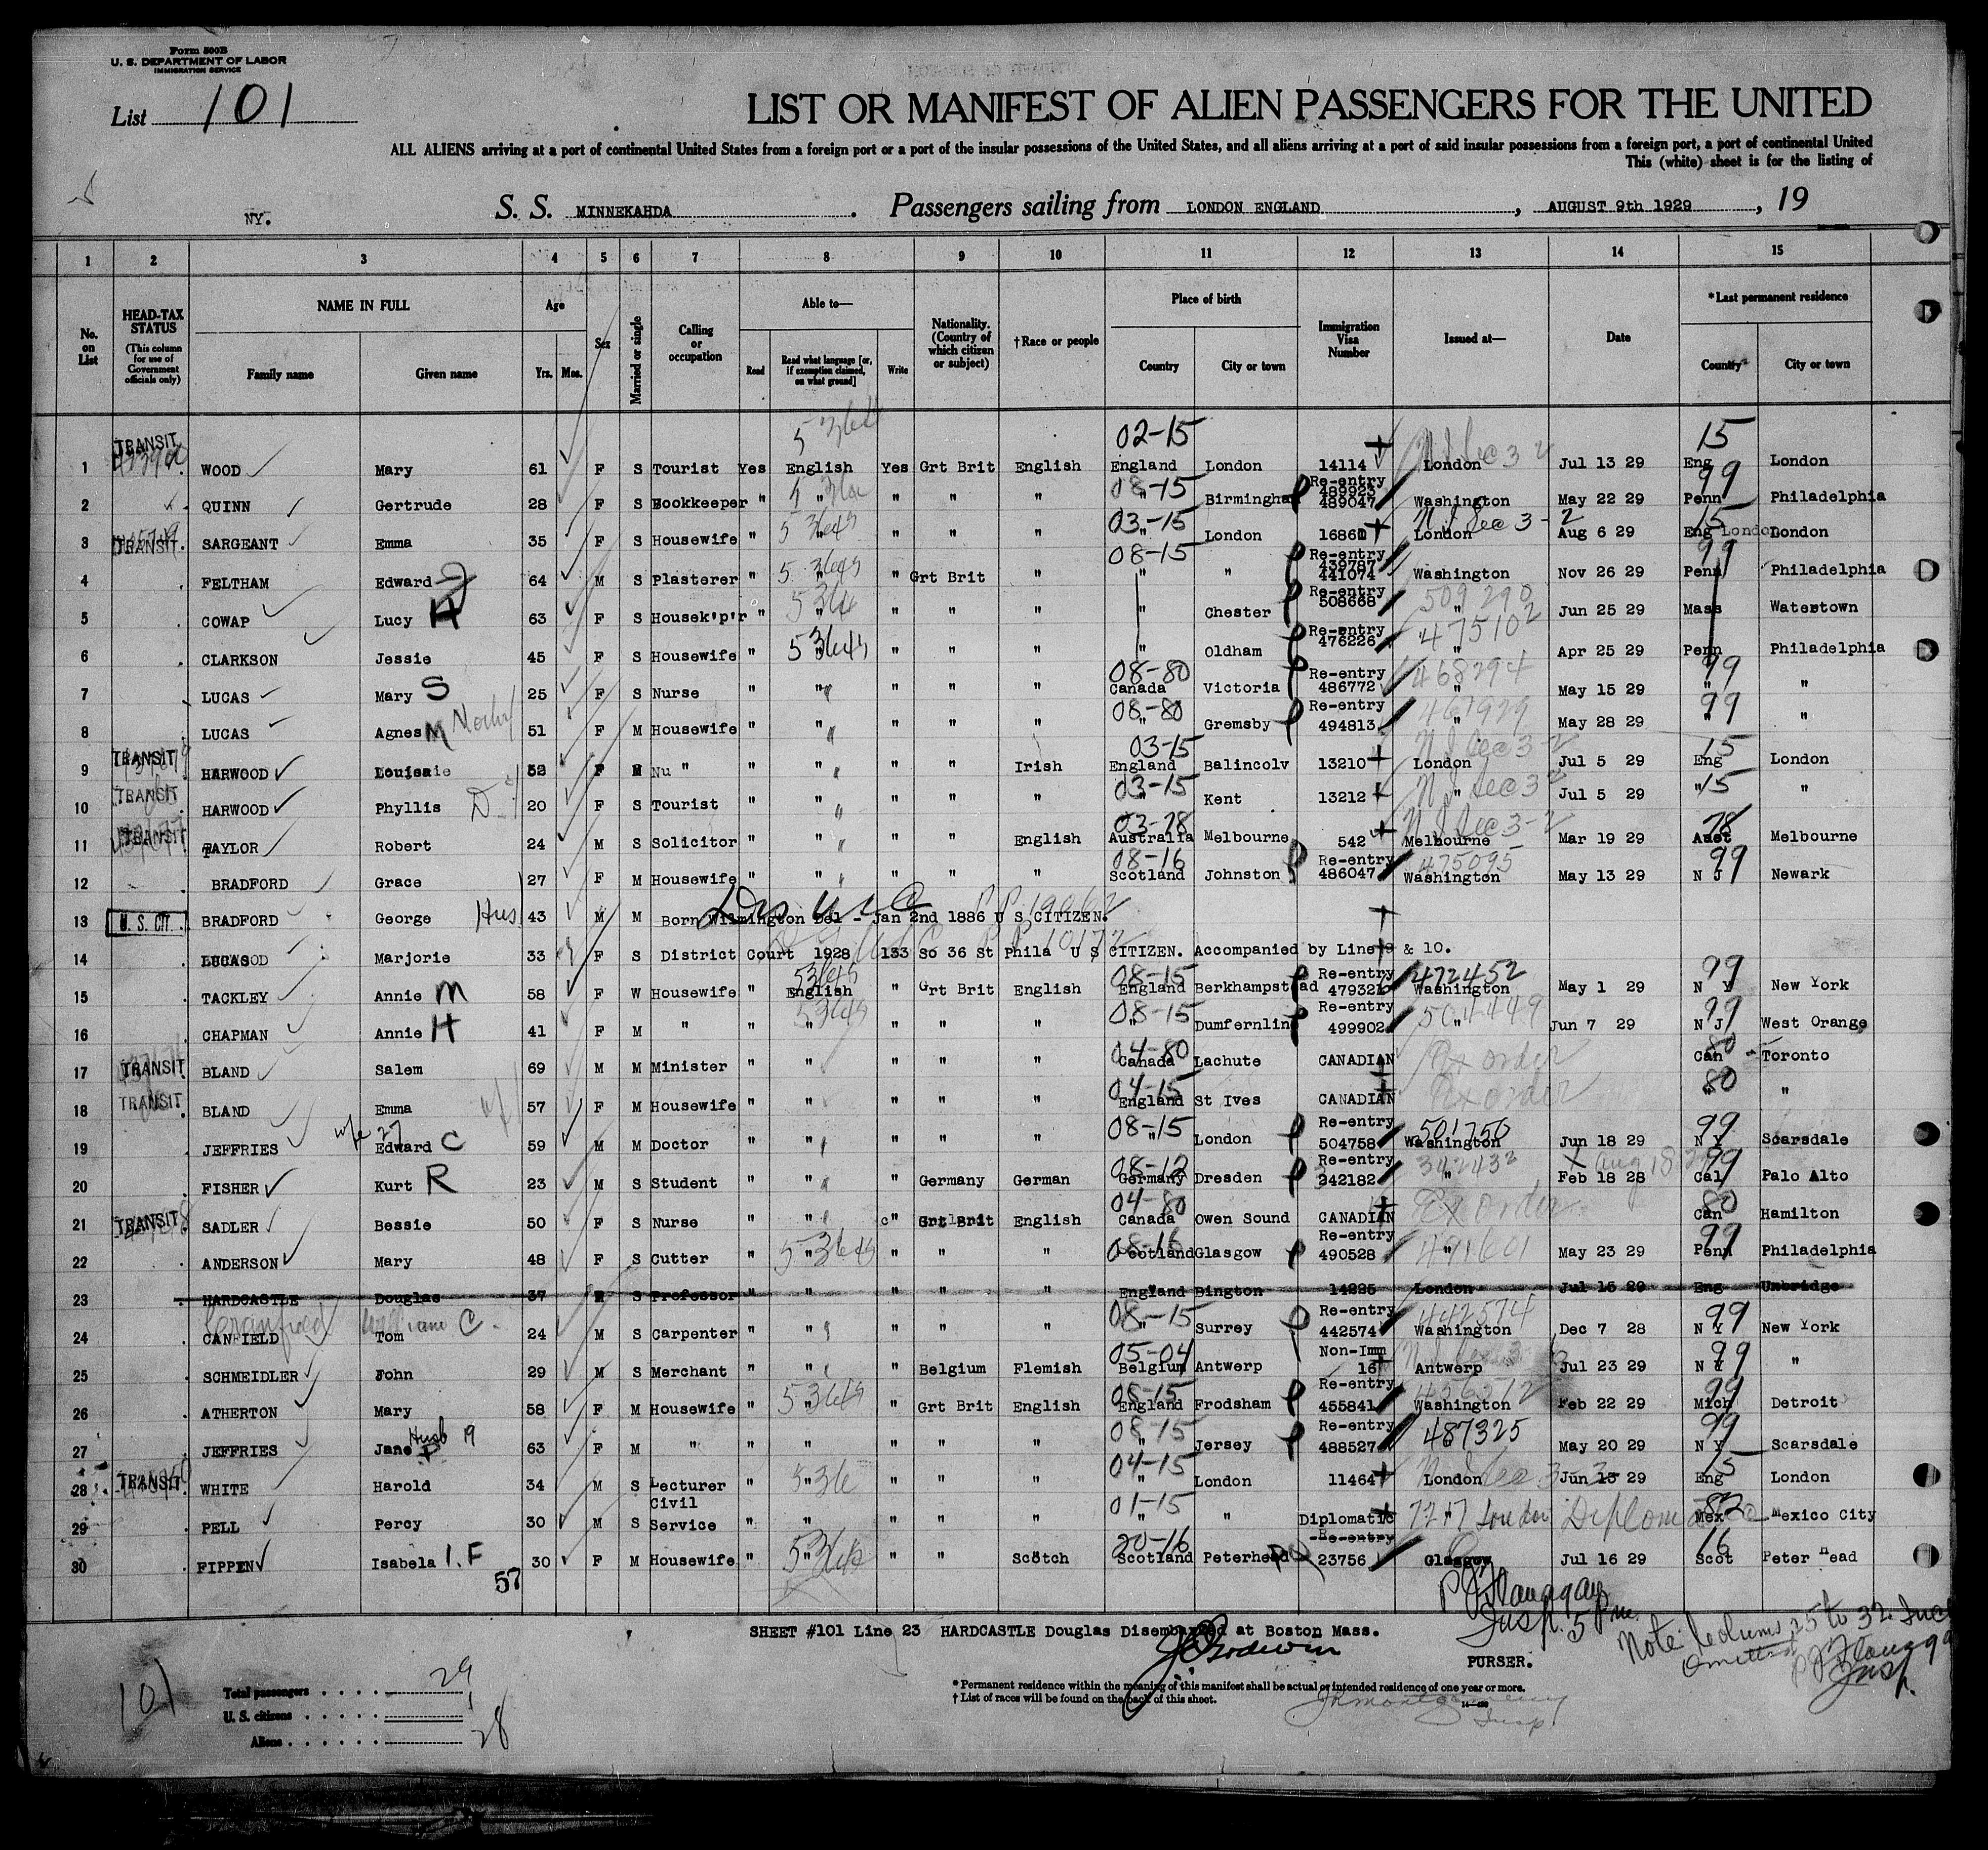 Form 500B
U. S. DEPARTMENT OF LABOR
IMMIGRATION SERVICE
List 101
LIST OR MANIFEST OF ALIEN PASSENGERS FOR THE UNITED
ALL ALIENS arriving at a port of continental United States from a foreign port or a port of the insular possessions of the United States, and all aliens arriving at a port of said insular possessions from a foreign port, a port of continental United
This (white) sheet is for the listing of
NY. S. S. MINNEKAHDA. Passengers sailing from LONDON ENGLAND, AUGUST 9th 1929, 19
1 2 3 4 5 6 7 8 9 10 11 12 13 14 15
No. on List HEAD-TAX STATUS (This column for use of Government officials only) NAME IN FULL Family name Given name Age Yrs. Mos. Sex Married or single Calling or occupation Able to— Read Read what language [or, if exemption claimed, on what ground] Write Nationality. (Country of which citizen or subject) †Race or people Place of birth Country City or town Immigration Visa Number Issued at— Date *Last permanent residence Country City or town
5 3648 02-15 15
1 TRANSIT WOOD Mary 61 F S Tourist Yes English Yes Grt Brit English England London 14114 London N I Sec 3-2 Jul 13 29 Eng London
2 QUINN Gertrude 28 F S Bookkeeper " " " " " 08-15 Birmingham Re-entry 489923 489047 Washington May 22 29 Penn 99 Philadelphia
3 TRANSIT SARGEANT Emma 35 F S Housewife " 5 3648 " " " 03-15 London 16861 London N I Sec 3-2 Aug 6 29 Eng 15 London London
4 FELTHAM Edward J 64 M S Plasterer " 5 3648 " Grt Brit " 08-15 " " Re-entry 439787 441074 Washington Nov 26 29 Penn 99 Philadelphia
5 COWAP Lucy H 63 F S Housek'p'r " 5 364 " " " " Chester Re-entry 508668 509290 " Jun 25 29 Mass Watertown
6 CLARKSON Jessie 45 F S Housewife " 5 3648 " " " " Oldham Re-entry 476226 475102 " Apr 25 29 Penn Philadelphia
7 LUCAS Mary S 25 F S Nurse " " " " " 08-80 Canada Victoria Re-entry 486772 468294 " May 15 29 " 99 "
8 LUCAS Agnes M Mother 51 F M Housewife " " " " " 08-80 " Gremsby Re-entry 494813 467929 " May 28 29 " 99 "
9 TRANSIT HARWOOD 52 F Nu " " " " " Irish 03-15 England Balincolv 13210 London N I Sec 3-2 Jul 5 29 Eng 15 London
10 TRANSIT HARWOOD Phyllis D 20 F S Tourist " " " " " 03-15 " Kent 13212 " N I Sec 3-2 Jul 5 29 " 15 "
11 TRANSIT TAYLOR Robert 24 M S Solicitor " " " " English 03-78 Australia Melbourne 542 Melbourne N I Sec 3-2 Mar 19 29 Aust 78 Melbourne
12 BRADFORD Grace 27 F M Housewife " " " " " 08-16 Scotland Johnston Re-entry 486047 475095 Washington May 13 29 N J 99 Newark
13 U. S. CIT. BRADFORD George Hus 43 M M Born Wilmington Del - Jan 2nd 1886 U S CITIZEN.
14 LUCAS Marjorie 33 F S District Court 1928 133 So 36 St Phila U S CITIZEN. Accompanied by Line 9 & 10.
15 TACKLEY Annie M 58 F W Housewife " 5 3648 English " Grt Brit English 08-15 England Berkhampstead Re-entry 479321 472452 Washington May 1 29 N Y 99 New York
16 CHAPMAN Annie H 41 F M " " 5 3648 " " " 08-15 " Dumfernlin Re-entry 499902 504449 " Jun 7 29 N J 99 West Orange
17 TRANSIT BLAND Salem 69 M M Minister " " " " " 04-80 Canada Lachute CANADIAN Ex order Can 80 Toronto
18 TRANSIT BLAND Emma wf 57 F M Housewife " " " " " 04-15 England St Ives CANADIAN Ex order " 80 "
19 JEFFRIES wife 27 Edward C 59 M M Doctor " " " " " 08-15 " London Re-entry 504758 501750 Washington Jun 18 29 N Y 99 Scarsdale
20 FISHER Kurt R 23 M S Student " " " Germany German 08-12 Germany Dresden Re-entry 242182 342432 " Feb 18 28 Cal 99 Palo Alto
21 TRANSIT SADLER Bessie 50 F S Nurse " " " Grt Brit English 04-80 Canada Owen Sound CANADIAN Ex order Can 80 Hamilton
22 ANDERSON Mary 48 F S Cutter " 5 3648 " " " 08-16 Scotland Glasgow Re-entry 490528 491601 " May 23 29 Penn 99 Philadelphia
23 HARDCASTLE Douglas 37 M S Professor " " " " " England Bington 14225 London Jul 16 29 Eng Uxbridge
24 Cranfield CANFIELD William C. Tom 24 M S Carpenter " " " " " 08-15 " Surrey Re-entry 442574 442574 Washington Dec 7 28 N Y 99 New York
25 SCHMEIDLER John 29 M S Merchant " " " Belgium Flemish 05-04 Belgium Antwerp Non-Imm 16 Antwerp Jul 23 29 N Y 99 "
26 ATHERTON Mary 58 F M Housewife " 5 3648 " Grt Brit English 08-15 England Frodsham Re-entry 455841 456512 Washington Feb 22 29 Mich 99 Detroit
27 JEFFRIES Husb 19 Jane P 63 F M " " " " " " 08-15 " Jersey Re-entry 488527 487325 May 20 29 N Y 99 Scarsdale
28 TRANSIT WHITE Harold 34 M S Lecturer " 5 36 " " " 04-15 " London 11464 London Jun 13 29 Eng 15 London
29 PELL Percy 30 M S Civil Service " " " " " 01-15 " " Diplomatic London Diplomatic Mex 82 Mexico City
30 FIPPEN Isabela I. F 30 F M Housewife " 5 3648 " " Scotch 20-16 Scotland Peterhead Re-entry 23756 Glasgow Jul 16 29 Scot 16 Peter Head
57
P J Flanagan
Insp. 5 pm.
SHEET #101 Line 23 HARDCASTLE Douglas Disembarked at Boston Mass.
Note Colums 25 to 32 Incl
Omitted
P J Flanagan
Insp.
PURSER.
101
Total passengers 29
U. S. citizens 1
Aliens 28
* Permanent residence within the meaning of this manifest shall be actual or intended residence of one year or more.
† List of races will be found on the back of this sheet.